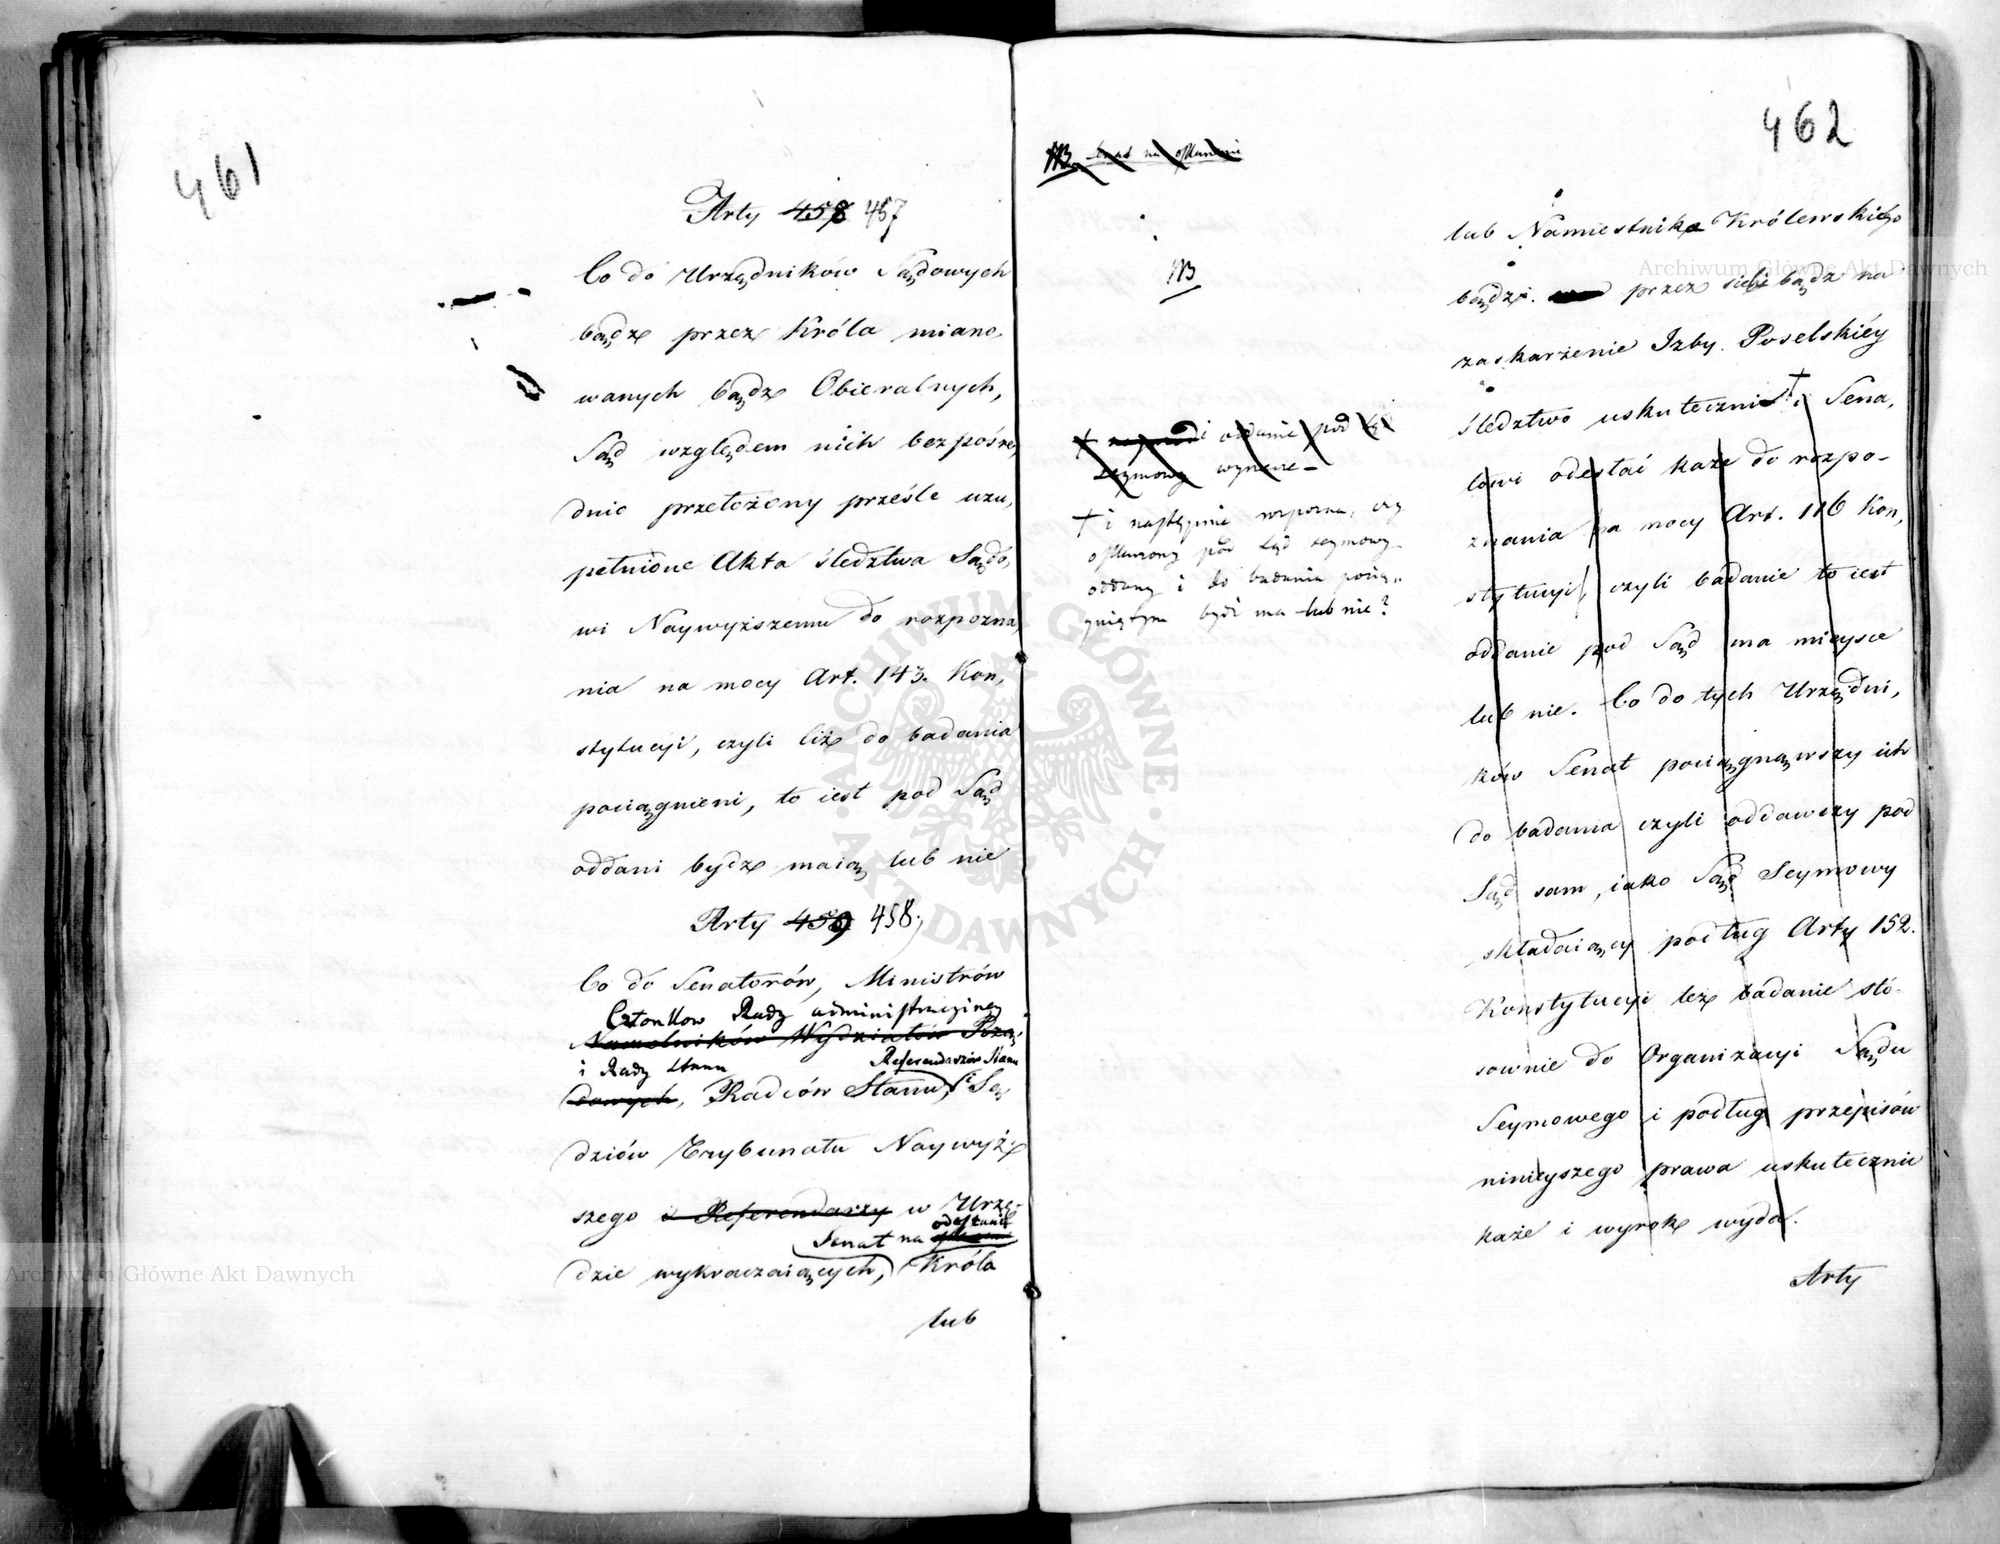 461
Arty 458 457
Co do Urzędników Sądowych
bądź przez Króla miano,
wanych bądź Obieralnych,
Sąd względem nich bezpośre,
dnio przełożony prześle uzu,
pełnione Akta śledztwa Sądo,
wi Naywyższemu do rozpozna,
nia na mocy Art. 143. Kon,
stytucyi, czyli liż do badania
pociągnieni, to iest pod Sąd
oddani bydź maią lub nie
Arty 459 458.
Co do Senatorów, Ministrów
Członków Rady administracyjney
Naczelników Wydziałów Rzą,
i Rady Stanu Referendarzów Stanu
dowych, Radców Stanu, i Sę,
dziów Trybunału Naywyż,
szego i Referendarzy w Urzę,
Senat na odesłanie
dzie wykraczaiących, Króla
lub
462
NB na oskarżenie
NB
+ i oddanie pod Sąd
seymowy wyrzecze
+ i następnie rozpozna, czy
oskarżony pod Sąd seymowy
oddany i do badania pocią,,
gniętym być ma lub nie?
lub Namiestnika Królewskiego
bądź przez siebie bądź na
zaskarżenie Izby Poselskiéy
śledztwo uskuteczni +, Sena,
towi odesłać każe do rozpo-
znania na mocy Art. 116 Kon,
stytucyi, czyli badanie to iest
oddanie pod Sąd ma mieysce
lub nie. Co do tych Urzędni,
ków Senat pociągnąwszy ich
do badania czyli oddawszy pod
Sąd sam, iako Sąd Seymowy
składaiący podług Arty 152.
Konstytucyi też badanie sto-
sownie do Organizacyi Sądu
Seymowego i podług przepisów
ninieyszego prawa uskutecznić
każe i wyrok wyda.
Arty
Archiwum Główne Akt Dawnych
Archiwum Główne Akt Dawnych
ARCHIWUM GŁÓWNE AKT DAWNYCH